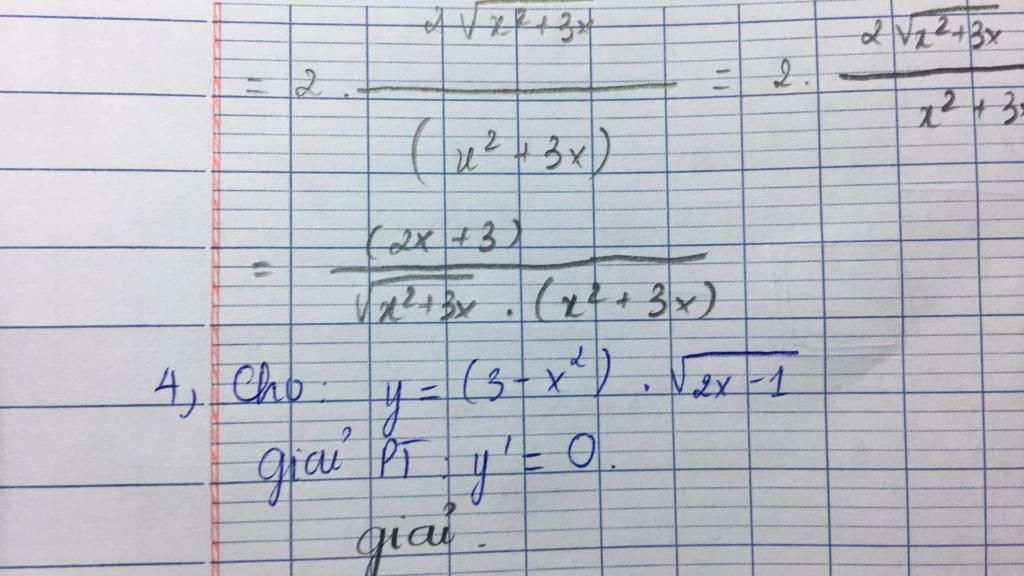 2√(x²+3x)
= 2 . ―――― = 2. 2√(x²+3x)
(x² + 3x) x² + 3x
= (2x + 3)
√(x²+3x) . (x² + 3x)
4, Cho: y = (3 - x²) . √(2x - 1)
giải PT : y' = 0.
giải.